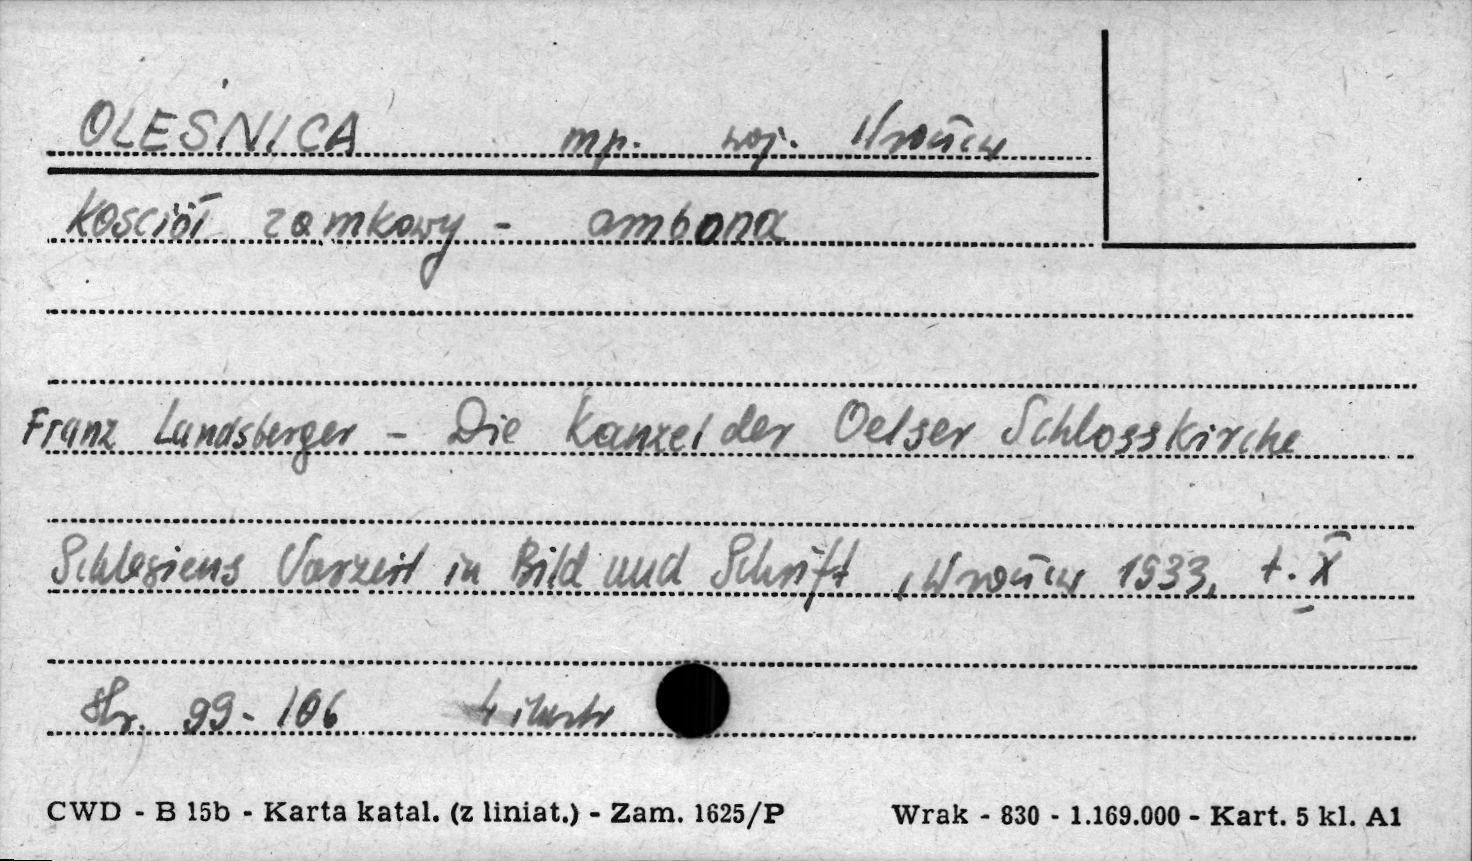 OLEŚNICA mp. woj. Wrocław
Kościół zamkowy - ambona
Franz Landsberger - Die Kanzel der Oelser Schlosskirche
Schlesiens Vorzeit in Bild und Schrift, Wrocław 1933, t. X
str. 99-106 4 ilustr
CWD - B 15b - Karta katal. (z liniat.) - Zam. 1625/P Wrak - 830 - 1.169.000 - Kart. 5 kl. A1